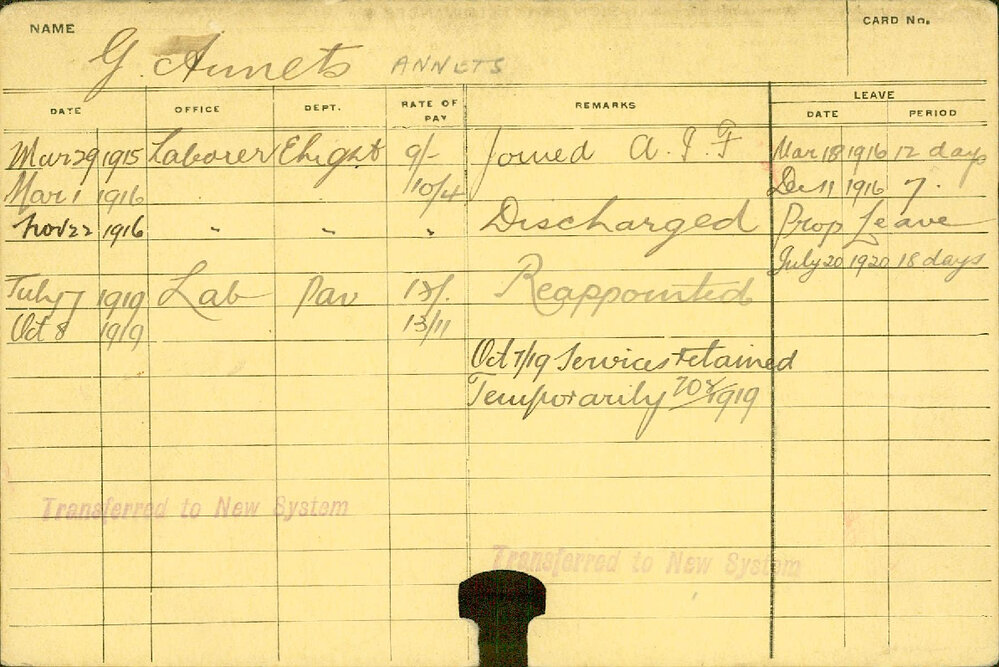 NAME
CARD No.
G. Annets ANNETS
DATE OFFICE DEPT. RATE OF PAY REMARKS LEAVE
DATE PERIOD
Mar 29 1915 Laborer Elight 9/- Joined A.I.F Mar 18 1916 12 days
Mar 1 1916 10/4 Dec 11 1916 7.
Nov 22 1916 " " " Discharged Prop Leave
July 20 1920 18 days
July 7 1919 Lab Pav Reappointed
Oct 8 1919 13/11
Oct 7/19 Services retained
Temporarily 1919
Transferred to New System
Transferred to New System